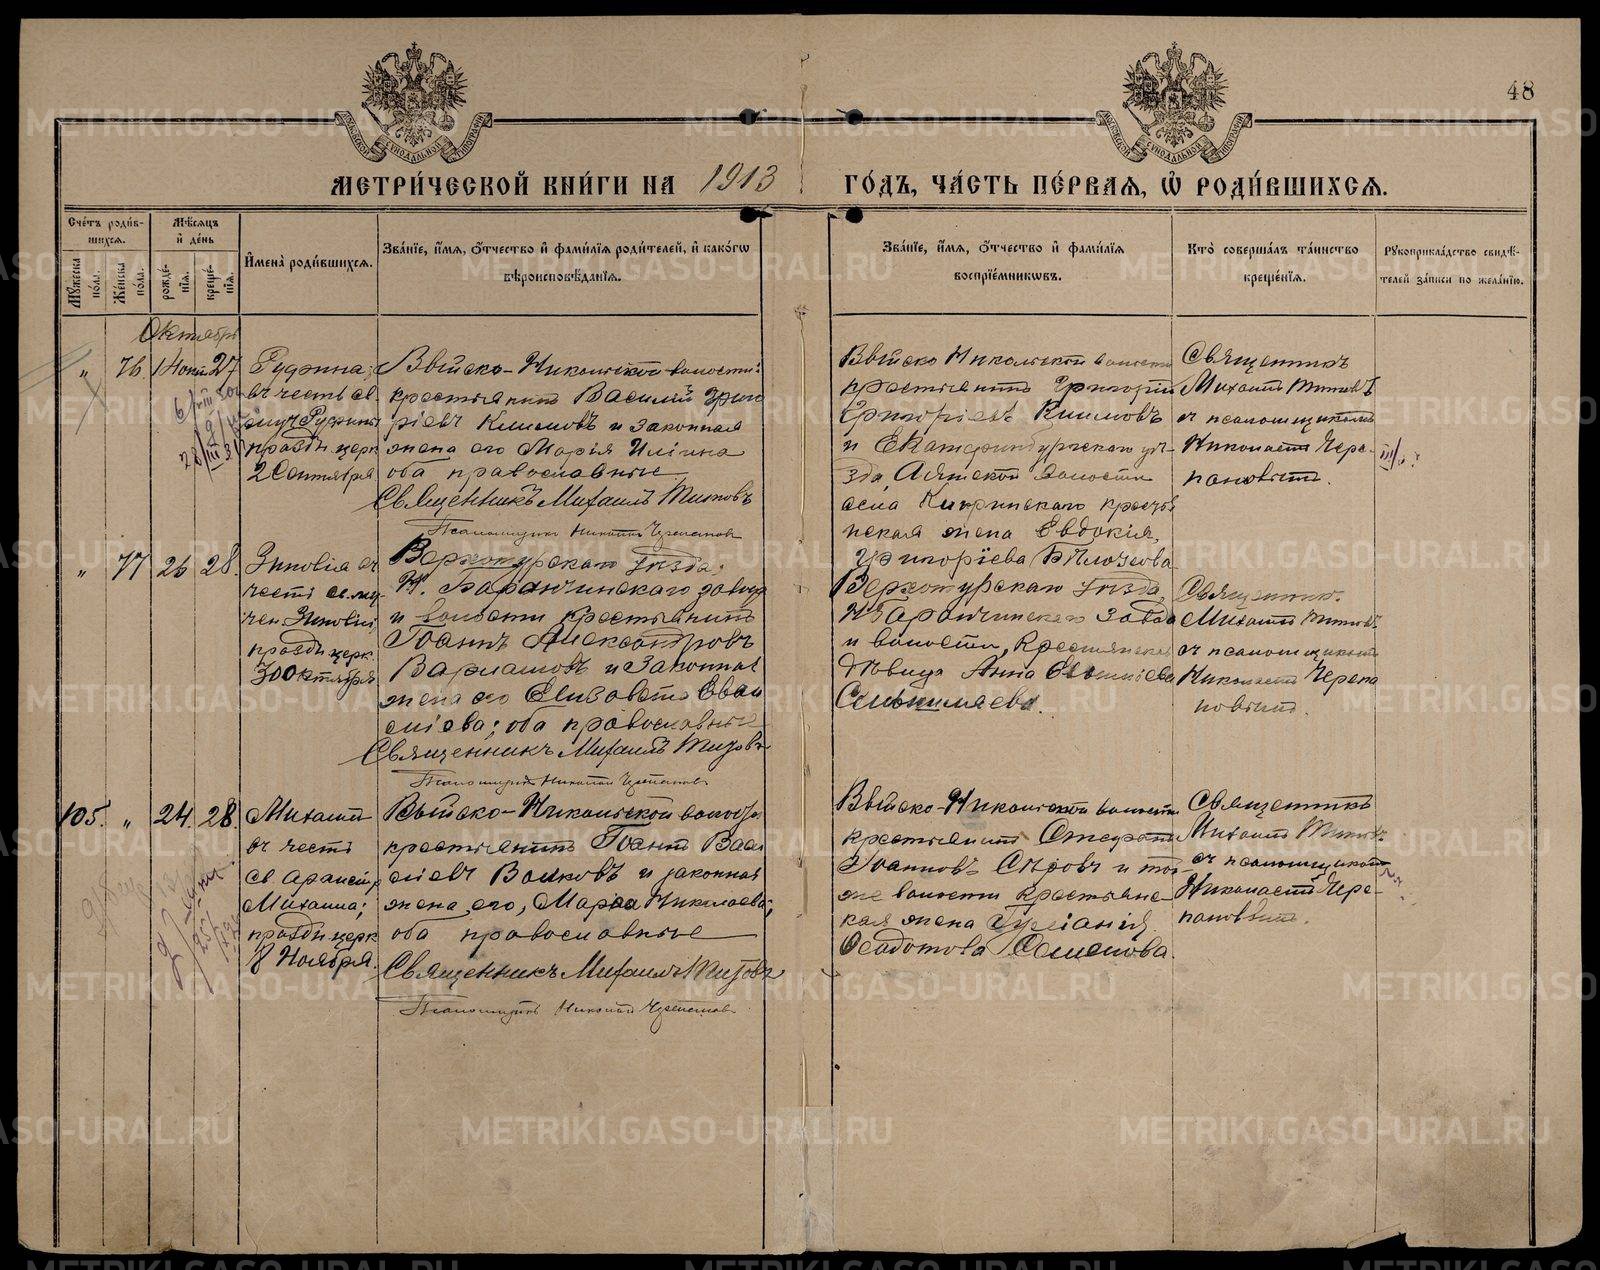 48
МОСКОВСКОЙ СѴНОДАЛЬНОЙ ТИПОГРАФИИ
МОСКОВСКОЙ СѴНОДАЛЬНОЙ ТИПОГРАФИИ
МЕТРИ́ЧЕСКОЙ КНИ́ГИ НА 1913 ГО́ДЪ, ЧА́СТЬ ПЕ́РВАЯ, Ѡ҆ РОДИ́ВШИХСЯ.
Сче́тъ роди́в-
шихся.
Мꙋ́жеска по́ла.
Же́нска по́ла.
Мѣ́сяцъ
и҆ де́нь
рожде́-
нїя.
креще́-
нїя.
И҆мена̀ роди́вшихся.
Зва́нїе, и҆́мя, ѻ҆́тчество и҆ фами́лїя роди́телей, и҆ како́гѡ
вѣроисповѣ́данїя.
Зва́нїе, и҆́мя, ѻ҆́тчество и҆ фами́лїя
воспрїе́мникѡвъ.
Кто̀ соверша́лъ та́инство
креще́нїя.
Рꙋкоприкла́дство свидѣ́-
телей за́писи по жела́нїю.
Октябрь
„ 76. 27
Руфина;
въ честь св.
муч. Руфины
праздн. церк
2 Сентября
Выйско-Никольской волости:
крестьянинъ Василій Григо
ріевъ Климовъ и законная
жена его Марія Иліина
оба православные
Священникъ Михаилъ Титовъ
Псаломщикъ Николай Черепановъ
Выйско Никольской волости
крестьянинъ Григорій
Григоріевъ Климовъ
и Екатеринбургскаго уѣ-
зда, Аятской волости
села крестья
нская жена Евдокія
Григоріева Бѣлоусова
Священникъ
Михаилъ Титовъ
съ псаломщикомъ
Николаемъ Чере-
пановымъ.
„ 77 26 28.
Зиновія въ
честь св. му-
чен. Зиновіи,
праздн. церк.
30 Октября
Верхотурскаго Уѣзда:
Н. Баранчинскаго завода
и волости крестьянинъ
Іоаннъ Александровъ
Варлаковъ и законная
жена его Елизавета
оба православные
Священникъ Михаилъ Титовъ
Псаломщикъ Николай Черепановъ
Верхотурскаго Уѣзда,
Н. Баранчинскаго завода
и волости, крестьянская
дѣвица Анна
Священникъ
Михаилъ Титовъ
съ псаломщикомъ
Николаемъ Черепа
новымъ.
105. „ 24. 28.
Михаилъ
въ честь
св архистр
Михаила;
праздн церк
8 Ноября.
Выйско-Никольской волости
крестьянинъ Іоаннъ Васи
ліевъ Волковъ и законная
жена его, Марія Николаева;
оба православные
Священникъ Михаилъ Титовъ
Псаломщикъ Николай Черепановъ
Выйско-Никольской волости
крестьянинъ Стефанъ
Іоанновъ и той
же волости крестьянс-
кая жена Іуліанія
Семенова.
Священникъ
Михаилъ Титовъ
съ псаломщикомъ
Николаемъ Чере-
пановымъ.
METRIKI.GASO-URAL.RU